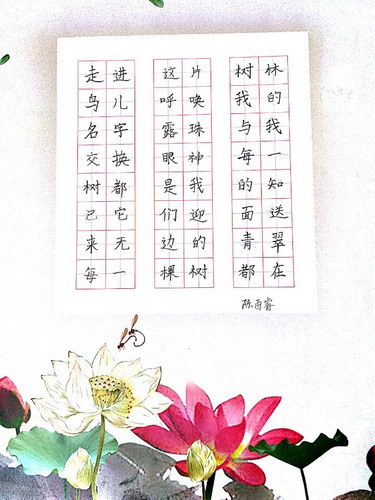 走进这片树林
鸟儿呼唤我的
名字露珠与我
交换眼神每一
树都是我的知
已它们迎面送
来无边的青翠
每一棵树都在